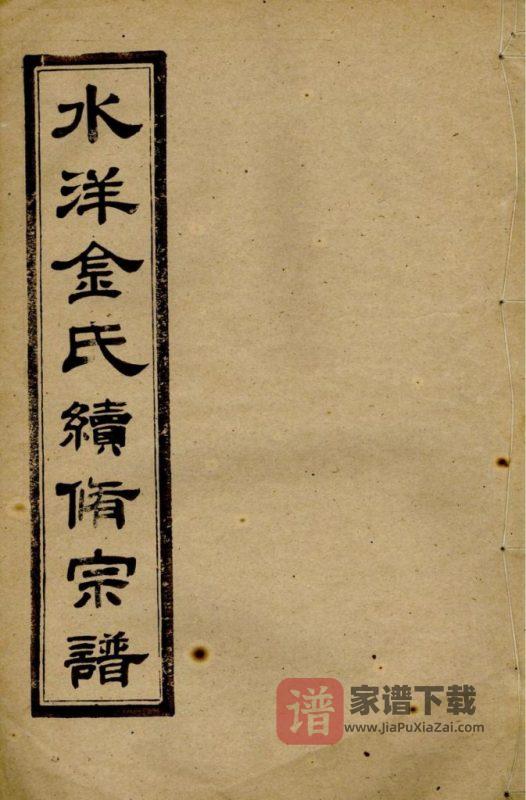 水洋金氏續脩宗譜
谱
家谱下载
www.JiaPuXiaZai.com